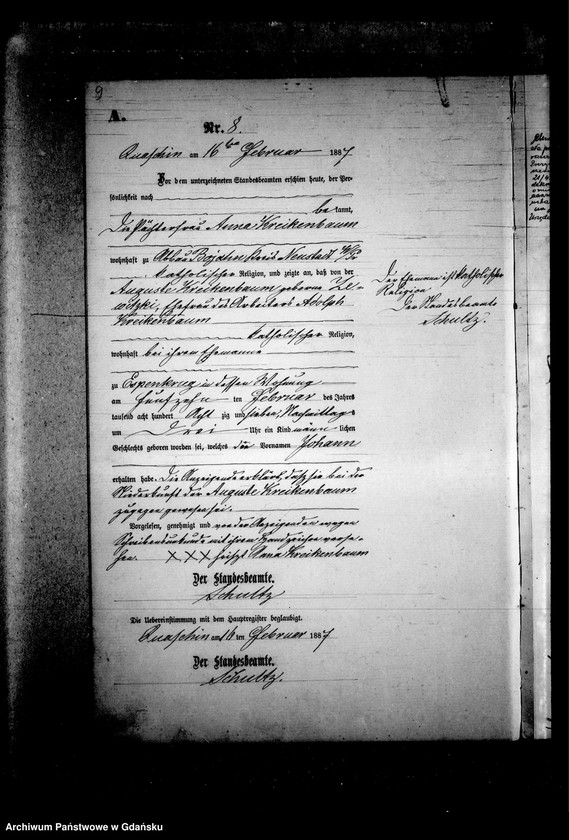 9
A.
Nr. 8.
Quaschin am 16ten Februar 1887
Vor dem unterzeichneten Standesbeamten erschien heute, der Per-
sönlichkeit nach
be kannt,
Die Pächterfrau Anna Kreikenbaum
wohnhaft zu Abbau Bojahn, Kreis Neustadt W/Pr
katholischer Religion, und zeigte an, daß von der
Auguste Kreikenbaum geborne
Ehefrau des Arbeiters Adolph
Kreikenbaum
katholischer Religion,
wohnhaft bei ihrem Ehemanne
zu Espenkrug in dessen Wohnung
am fünfzehn ten Februar des Jahres
tausend acht hundert Acht zig und sieben, Nachmittags
um Drei Uhr ein Kind männ lichen
Geschlechts geboren worden sei, welches den Vornamen Johann
erhalten habe. Die Anzeigende erklärt, daß sie bei der
Niederkunft der Auguste Kreikenbaum
zugegen gewesen sei.
Vorgelesen, genehmigt und von der Anzeigenden wegen
Schreibensunkunde mit ihrem Handzeichen verse-
hen. XXX heißt Anna Kreikenbaum
Der Standesbeamte.
Schultz
Die Uebereinstimmung mit dem Hauptregister beglaubigt.
Quaschin am 16 ten Februar 1887
Der Standesbeamte.
Schultz.
Der Ehemann ist katholischer
Religion
Der Standesbeamte
Schultz.
Archiwum Państwowe w Gdańsku